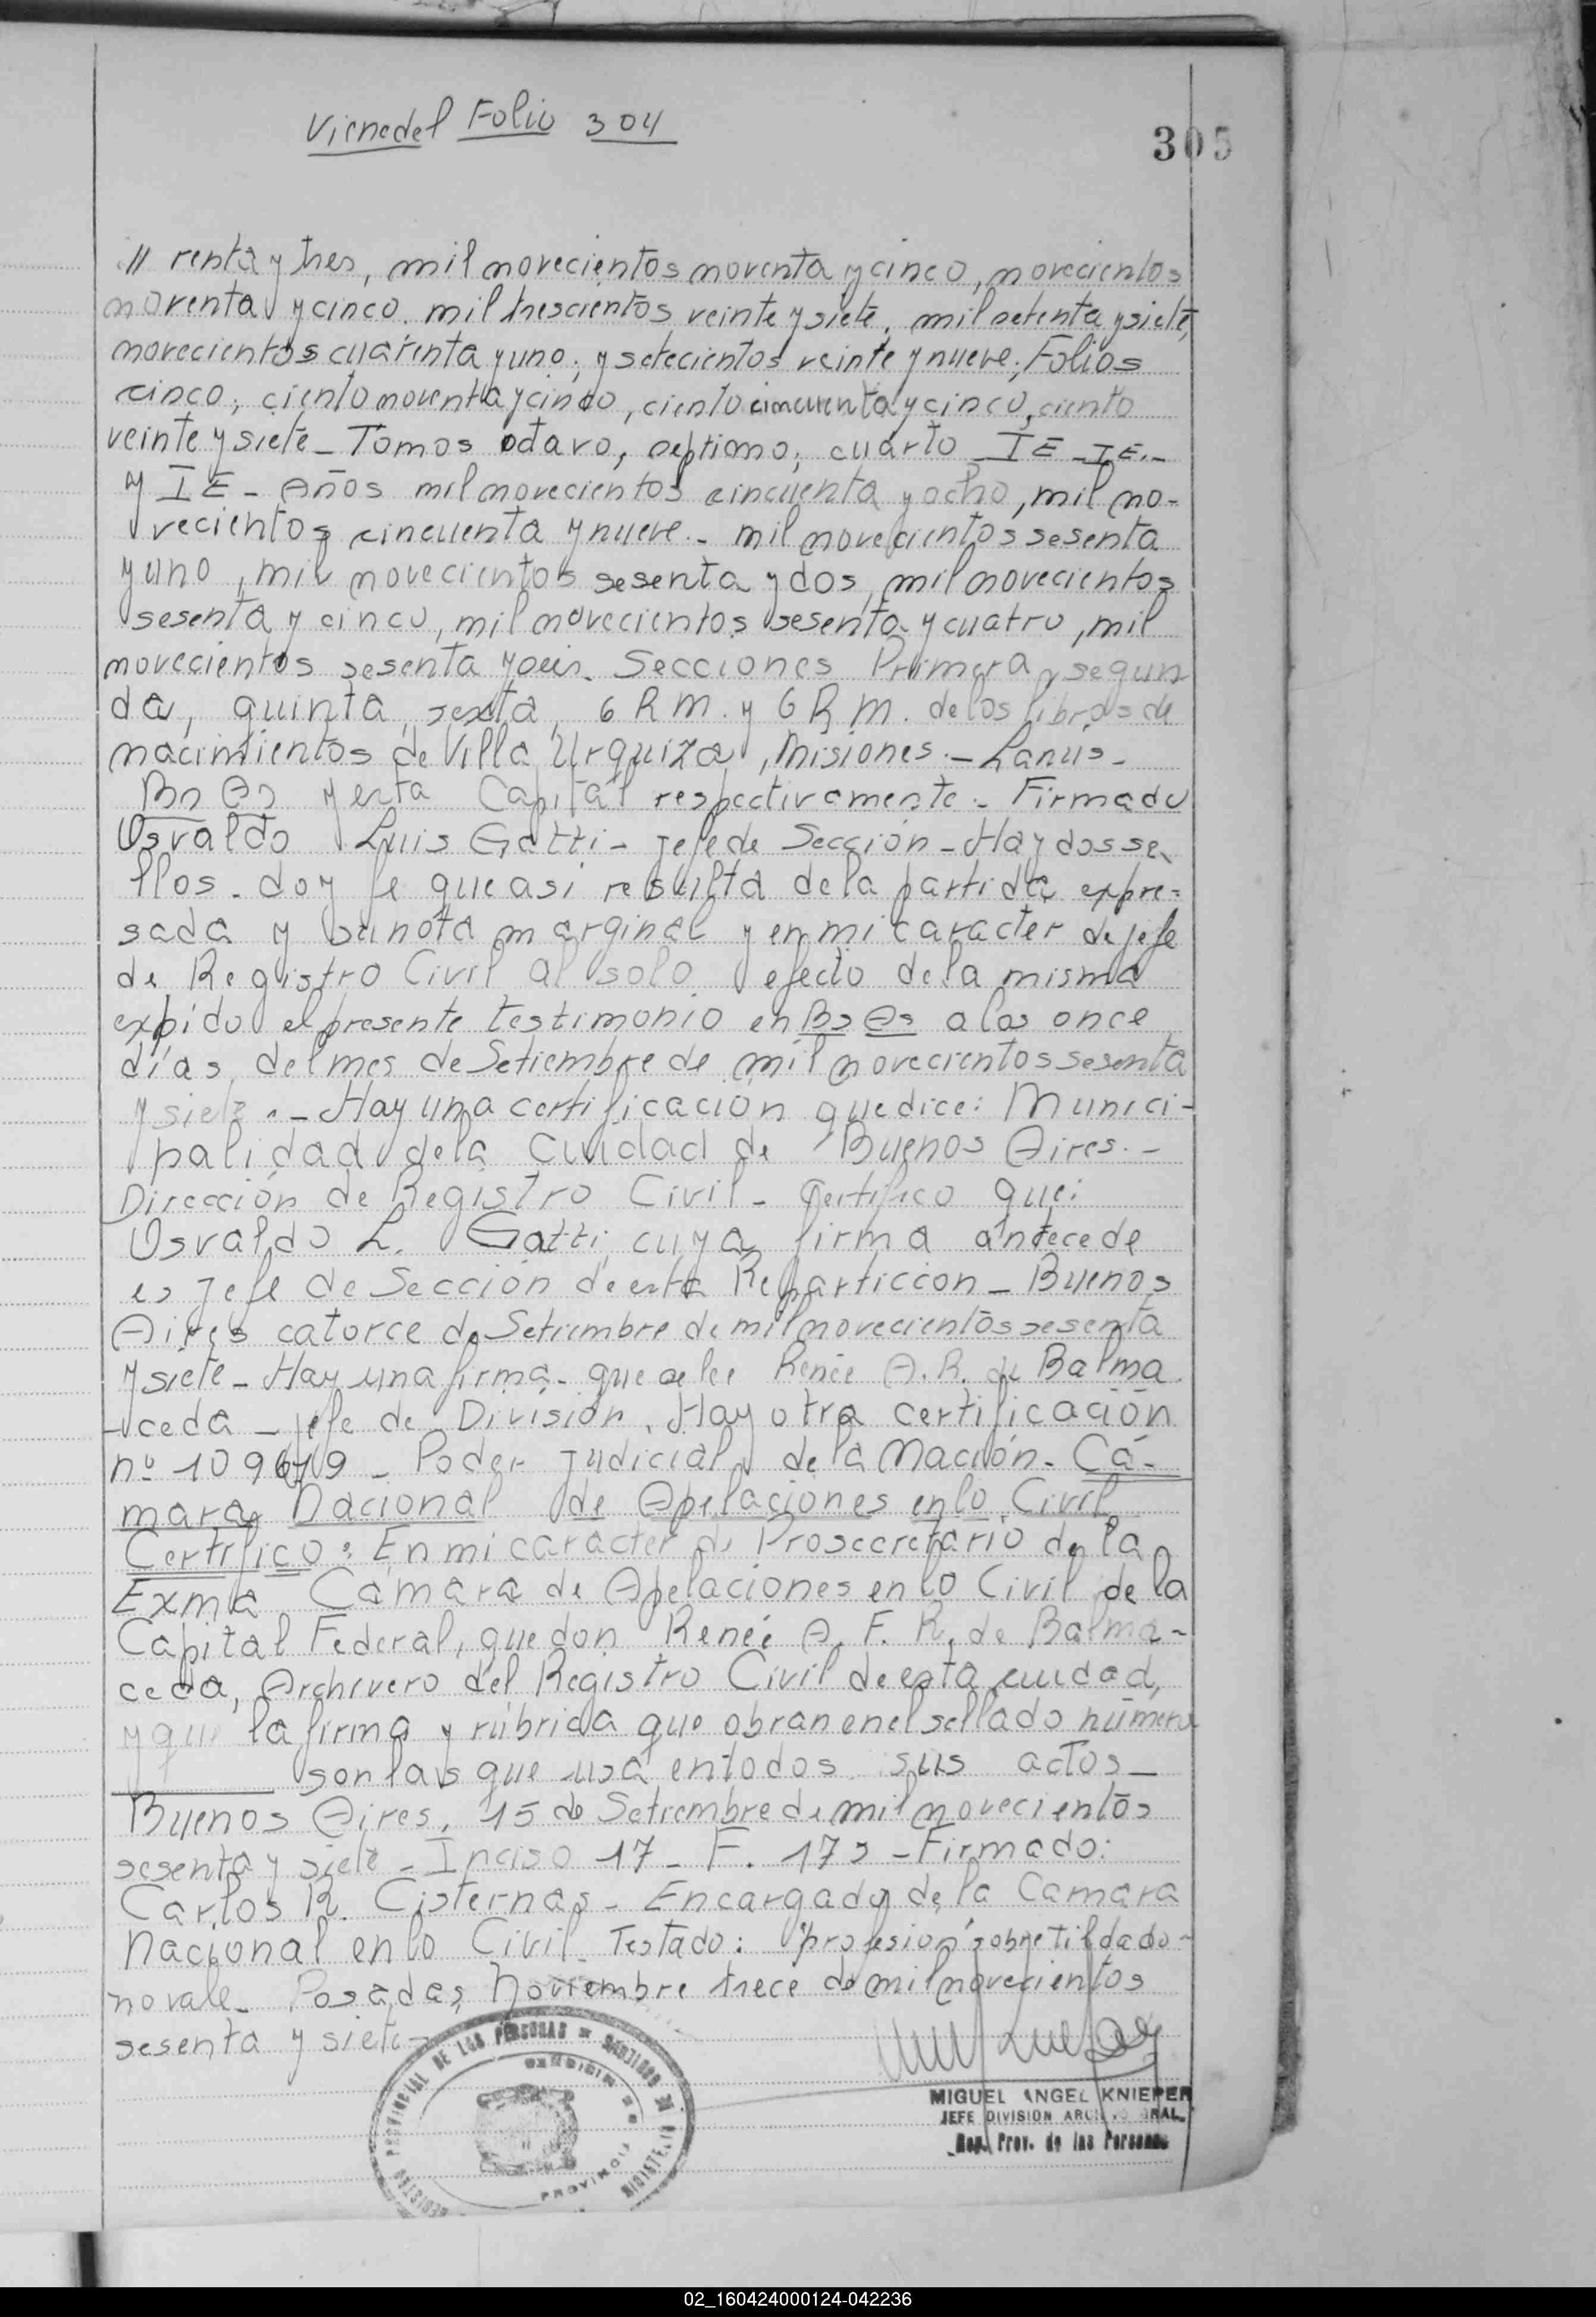 Viene del Folio 304
305
// renta y tres, mil novecientos noventa y cinco, novecientos
noventa y cinco. mil trescientos veinte y siete, mil setenta y siete,
novecientos cuarenta y uno; y setecientos veinte y nueve; Folios
cinco; ciento noventa y cinco, ciento cincuenta y cinco, ciento
veinte y siete - Tomos octavo, septimo; cuarto IE - IE.-
y IE - Años mil novecientos cincuenta y ocho, mil no-
vecientos cincuenta y nueve.- mil novecientos sesenta
y uno, mil novecientos sesenta y dos, mil novecientos
sesenta y cinco, mil novecientos sesenta y cuatro, mil
novecientos sesenta y seis. Secciones Primera, segun
da, quinta, sexta, 6 R M. y 6 R M. de los libros de
nacimientos de Villa Urquiza, Misiones.- Lanús-
Bs As y esta Capital respectivamente.- Firmado
Osvaldo Luis Gatti - jefe de Sección - Hay dos se-
llos - doy fe que asi resulta de la partida expre-
sada y su nota marginal y en mi caracter de jefe
de Registro Civil al solo efecto de la misma
expido el presente testimonio en Bs As a los once
días, del mes de Setiembre de mil novecientos sesenta
y siete.- Hay una certificación que dice: Munici-
palidad de la Ciudad de Buenos Aires.-
Dirección de Registro Civil - Certifico que:
Osvaldo L. Gatti cuya firma antecede
es jefe de Sección de esta Reparticción - Buenos
Aires catorce de Setiembre de mil novecientos sesenta
y siete - Hay una firma - que se lee Renée A. R. de Balma
-ceda - jefe de División. Hay otra certificación
nº - Poder judicial de la Nación - Cá-
mara Nacional de Apelaciones en lo Civil
Certifico: En mi caracter de Prosecretario de la
Exma Cámara de Apelaciones en lo Civil de la
Capital Federal, que don Renée A. F. R. de Balma-
ceda, Archivero del Registro Civil de esta ciudad,
y que la firma y rúbrica que obran en el sellado número
son las que usa en todos sus actos -
Buenos Aires, 15 de Setiembre de mil novecientos
sesenta y siete - Inciso 17 - F. 172 - Firmado:
Carlos R. Cisternas - Encargado de la Camara
Nacional en lo Civil - Testado: "profesion" sobre tildado -
no vale - Posadas, Noviembre trece de mil novecientos
sesenta y siete -
MIGUEL ANGEL KNIEPER
JEFE DIVISION ARCHIVO GRAL.
Reg. Prov. de las Personas
PROVINCIAL DE LAS PERSONAS
02_160424000124-042236